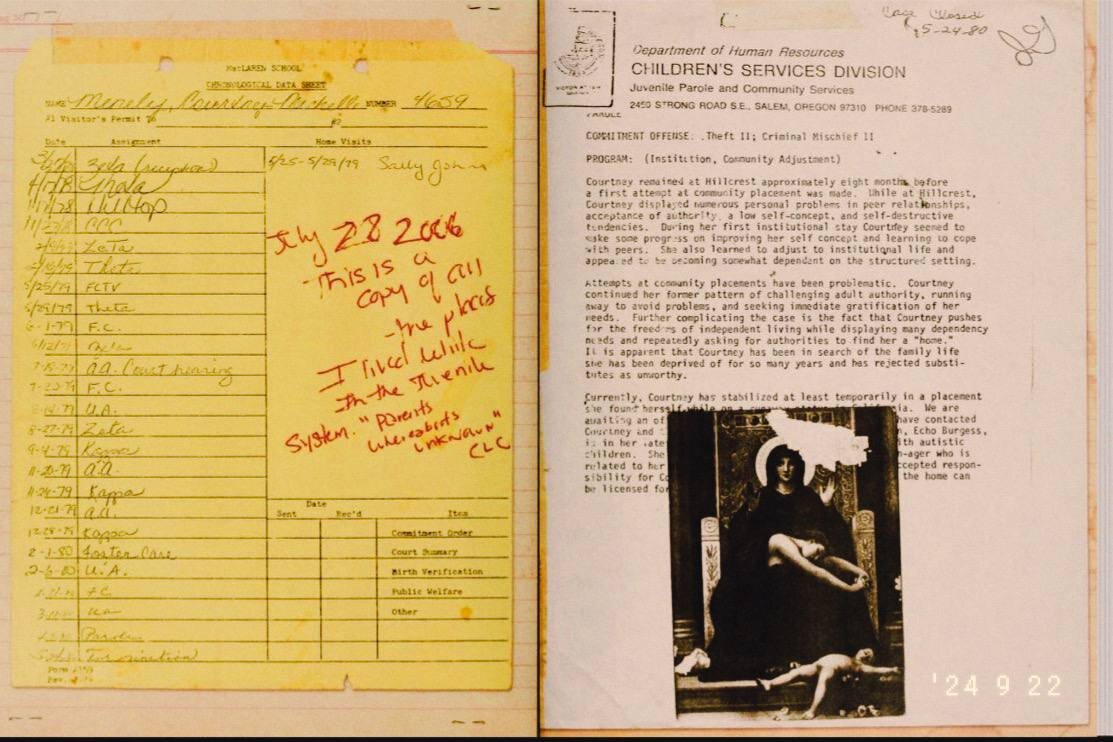 MacLAREN SCHOOL
CHRONOLOGICAL DATA SHEET
NAME Menely, Courtney Michelle NUMBER 4659
#1 Visitor's Permit To #2
Date Assignment Home Visits
Zeta (reception) 5/25-5/29/79 Sally
Hilltop
11/27/78 CCC
Zeta
Theta
5/25/79 FCTV
5/29/79 Theta
6-1-79 F.C.
a.a. Court hearing
F.C.
U.A.
8-27-79 Zeta
9-4-79 Kappa
11-20-79 a.a.
11-24-79 Kappa
12-21-79 a.a.
12-28-79 Kappa
2-1-80 Foster Care
2-6-80 U.A.
F.C.
Parole
Termination
July 28 2006
-This is a
copy of all
-the places
I lived while
-In the Juvenile
System. "Parents
whereabouts
unknown"
CLC
Date
Sent Rec'd Item
Commitment Order
Court Summary
Birth Verification
Public Welfare
Other
Form
Rev.
Case Closed
5-24-80
Department of Human Resources
CHILDREN'S SERVICES DIVISION
Juvenile Parole and Community Services
2450 STRONG ROAD S.E., SALEM, OREGON 97310 PHONE 378-5289
VICTOR ATIYEH
PAROLE
COMMITMENT OFFENSE: Theft II; Criminal Mischief II
PROGRAM: (Institution, Community Adjustment)
Courtney remained at Hillcrest approximately eight months before
a first attempt at community placement was made. While at Hillcrest,
Courtney displayed numerous personal problems in peer relationships,
acceptance of authority, a low self-concept, and self-destructive
tendencies. During her first institutional stay Courtney seemed to
make some progress on improving her self concept and learning to cope
with peers. She also learned to adjust to institutional life and
appeared to be becoming somewhat dependent on the structured setting.
Attempts at community placements have been problematic. Courtney
continued her former pattern of challenging adult authority, running
away to avoid problems, and seeking immediate gratification of her
needs. Further complicating the case is the fact that Courtney pushes
for the freedoms of independent living while displaying many dependency
needs and repeatedly asking for authorities to find her a "home."
It is apparent that Courtney has been in search of the family life
she has been deprived of for so many years and has rejected substi-
tutes as unworthy.
Currently, Courtney has stabilized at least temporarily in a placement
she found herself while on a We are
awaiting an of have contacted
Courtney and Echo Burgess,
is in her late with autistic
children. She who is
related to her accepted respon-
sibility for the home can
be licensed for
'24 9 22